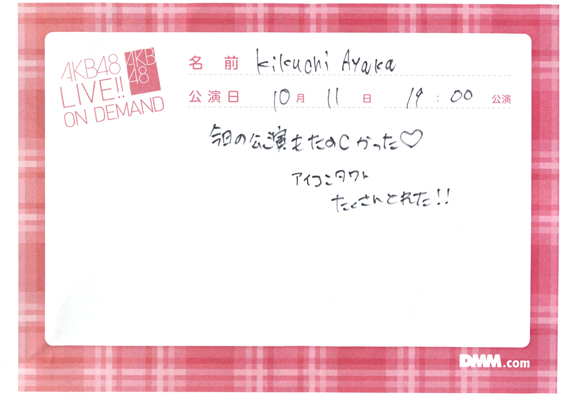 AKB48
LIVE!!
ON DEMAND
AKB
48
名前 Kikuchi Ayaka
公演日 10月11日 19:00公演
今日の公演もたのしかった♡
アイコンタクト
たくさんとれた!!
DMM.com